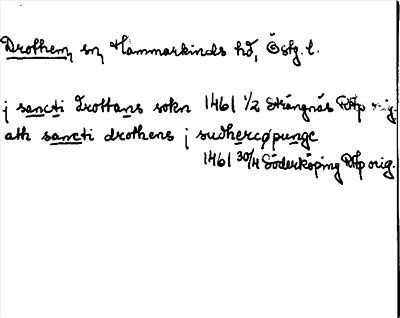 Drothem, sn, Hammarkinds hd, Östg. l.
j sancti drottans sokn 1461 1/2 Strängnäs RAp orig.
ath sancti drothens j sudhercøpunge
1461 30/4 Söderköping RAp orig.